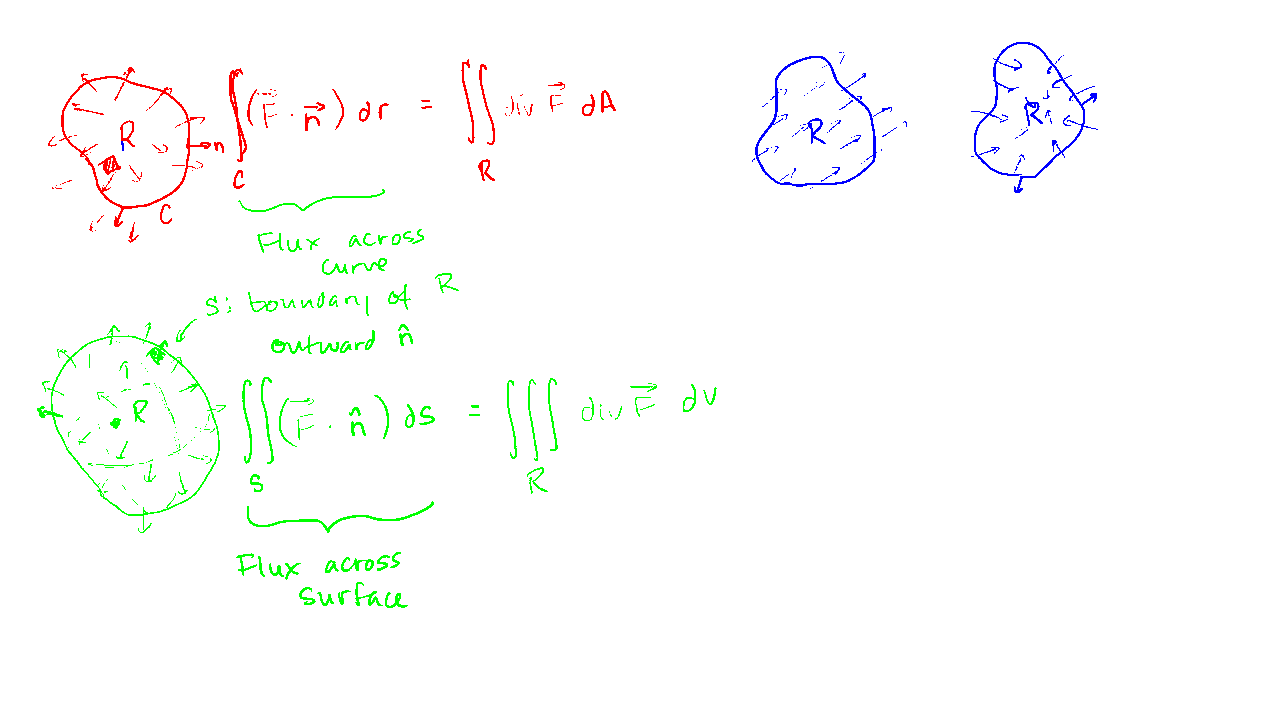 R n C
∫_C (F⃗ · n⃗) dr = ∬_R div F⃗ dA
Flux across
curve
S: boundary of R
outward n̂
R
∬_S (F⃗ · n̂) dS = ∭_R div F⃗ dV
Flux across
surface
R
R